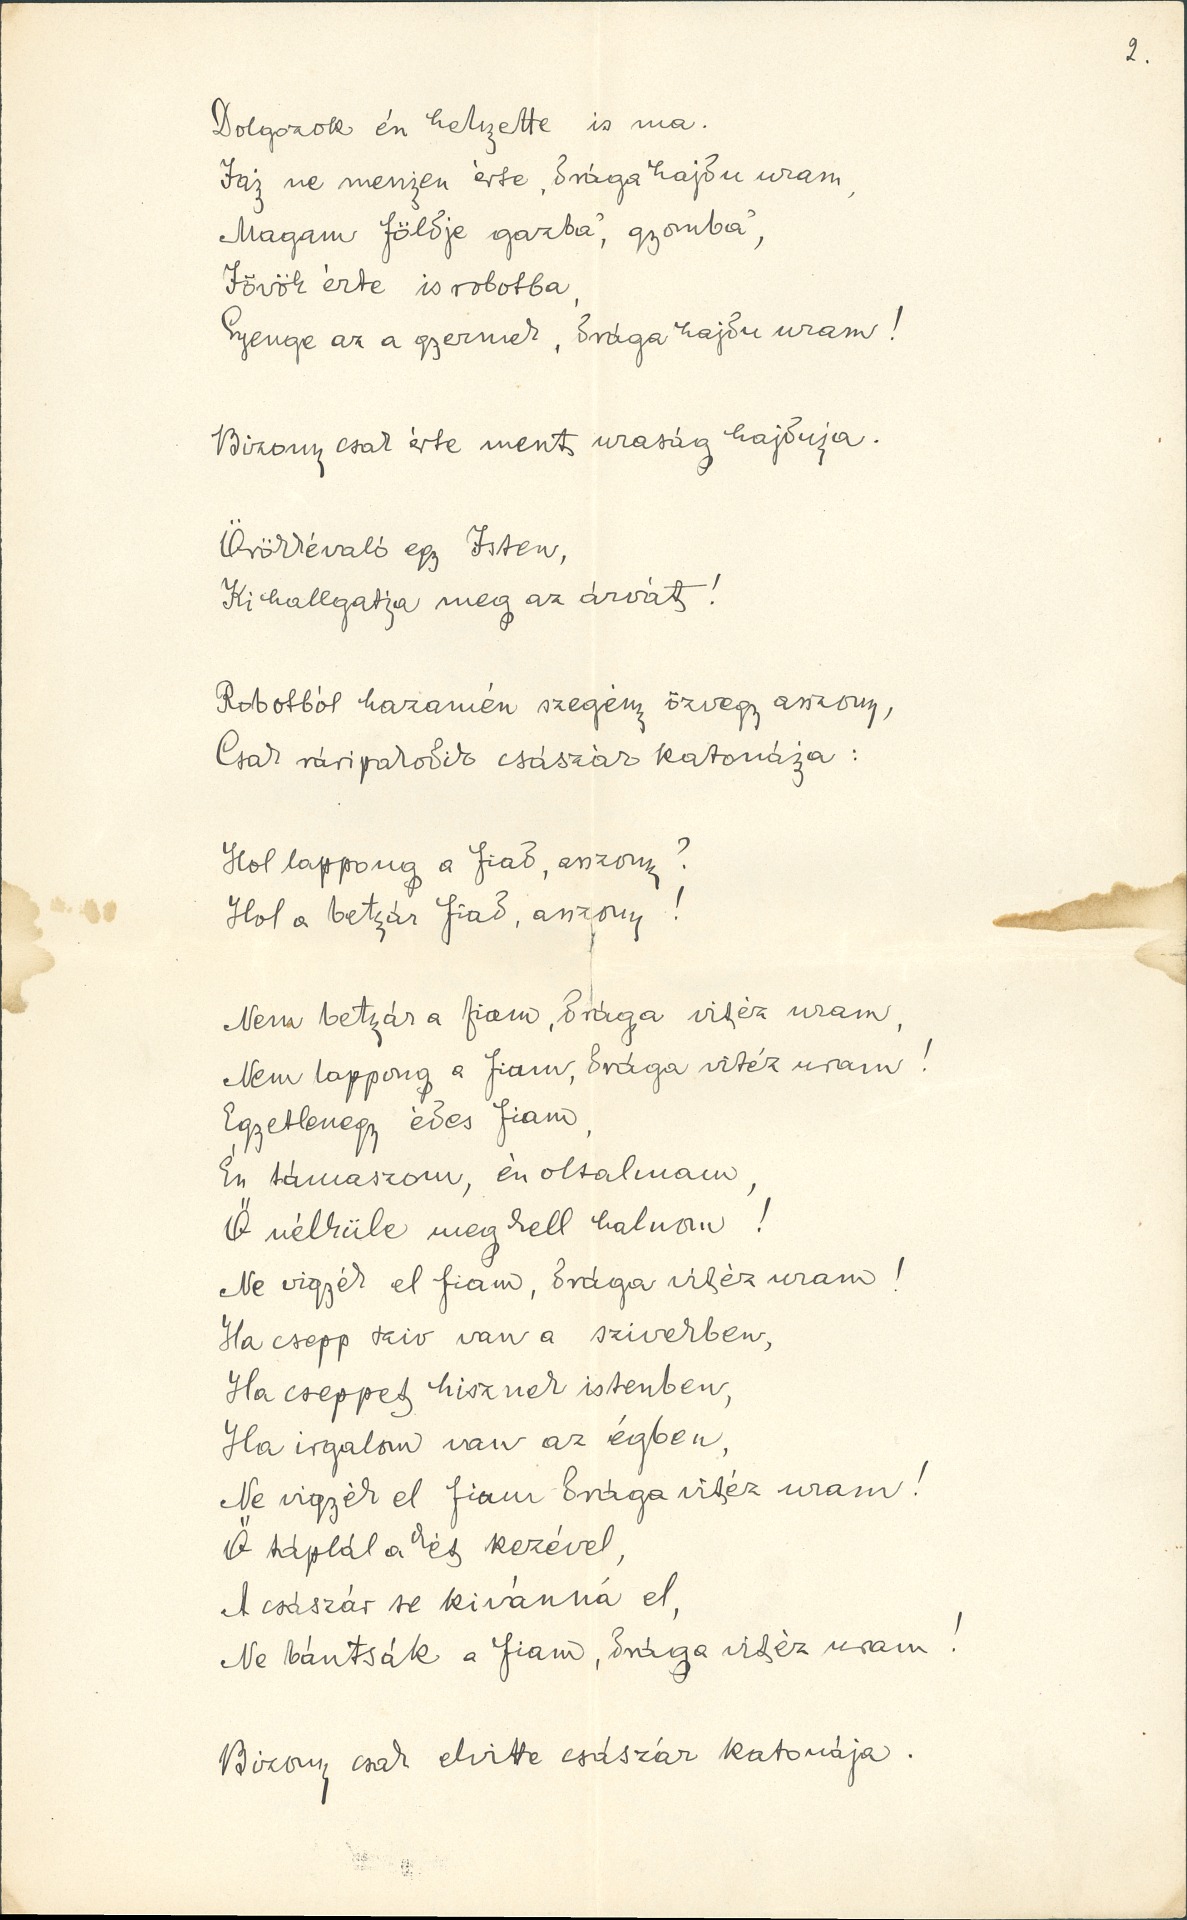 2.
Dolgozok én helyette is ma.
Jaj ne menjen érte, drága hajdu uram,
Magam földje gazba', gyomba',
Jövök érte is robotba,
Gyenge az a gyermek, drága hajdu uram!
Bizony csak érte ment uraság hajduja.
Örökkévaló egy Isten,
Ki hallgatja meg az árvát!
Robotból hazamén szegény özvegy asszony,
Csak ráripakodik császár katonája:
Hol lappong a fiad, asszony?
Hol a betyár fiad, asszony!
Nem betyár a fiam, drága vitéz uram,
Nem lappong a fiam, drága vitéz uram!
Egyetlenegy édes fiam,
Én támaszom, én oltalmam,
Ő nélküle meg kell halnom!
Ne vigyék el fiam, drága vitéz uram!
Ha csepp sziv van a szivekben,
Ha cseppet hisznek istenben,
Ha irgalom van az égben,
Ne vigyék el fiam drága vitéz uram!
Ő táplál a két kezével,
A császár se kivánná el,
Ne bántsák a fiam, drága vitéz uram!
Bizony csak elvitte császár katonája.